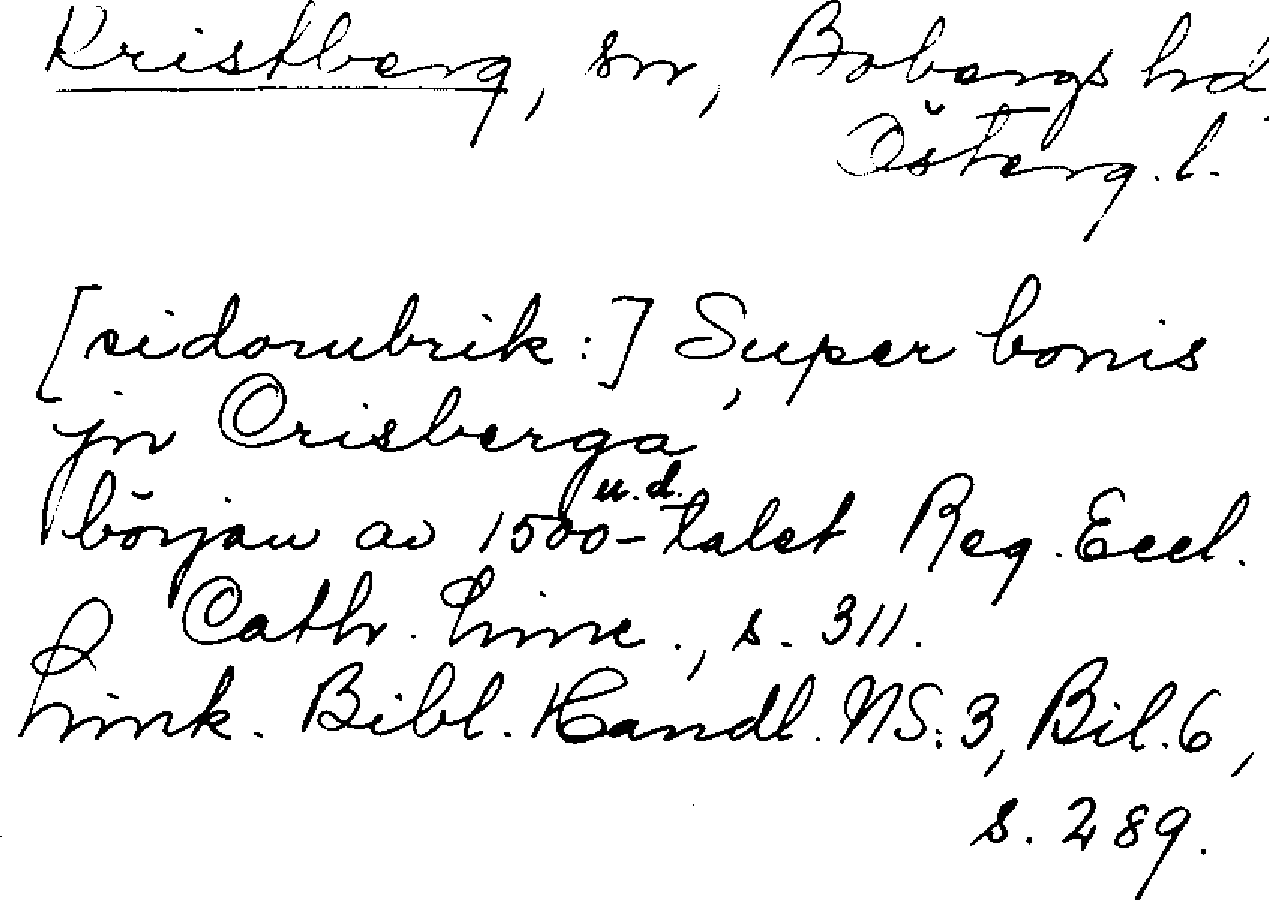 Kristberg, sn, Bobergs hd
Österg.l.
[sidorubrik:] Super bonis
jn Crisberga
u.d.
början av 1500-talet Reg. Eccl.
Cath. Linc., s. 311.
Link. Bibl. Handl. NS:3, Bil.6,
s. 289.